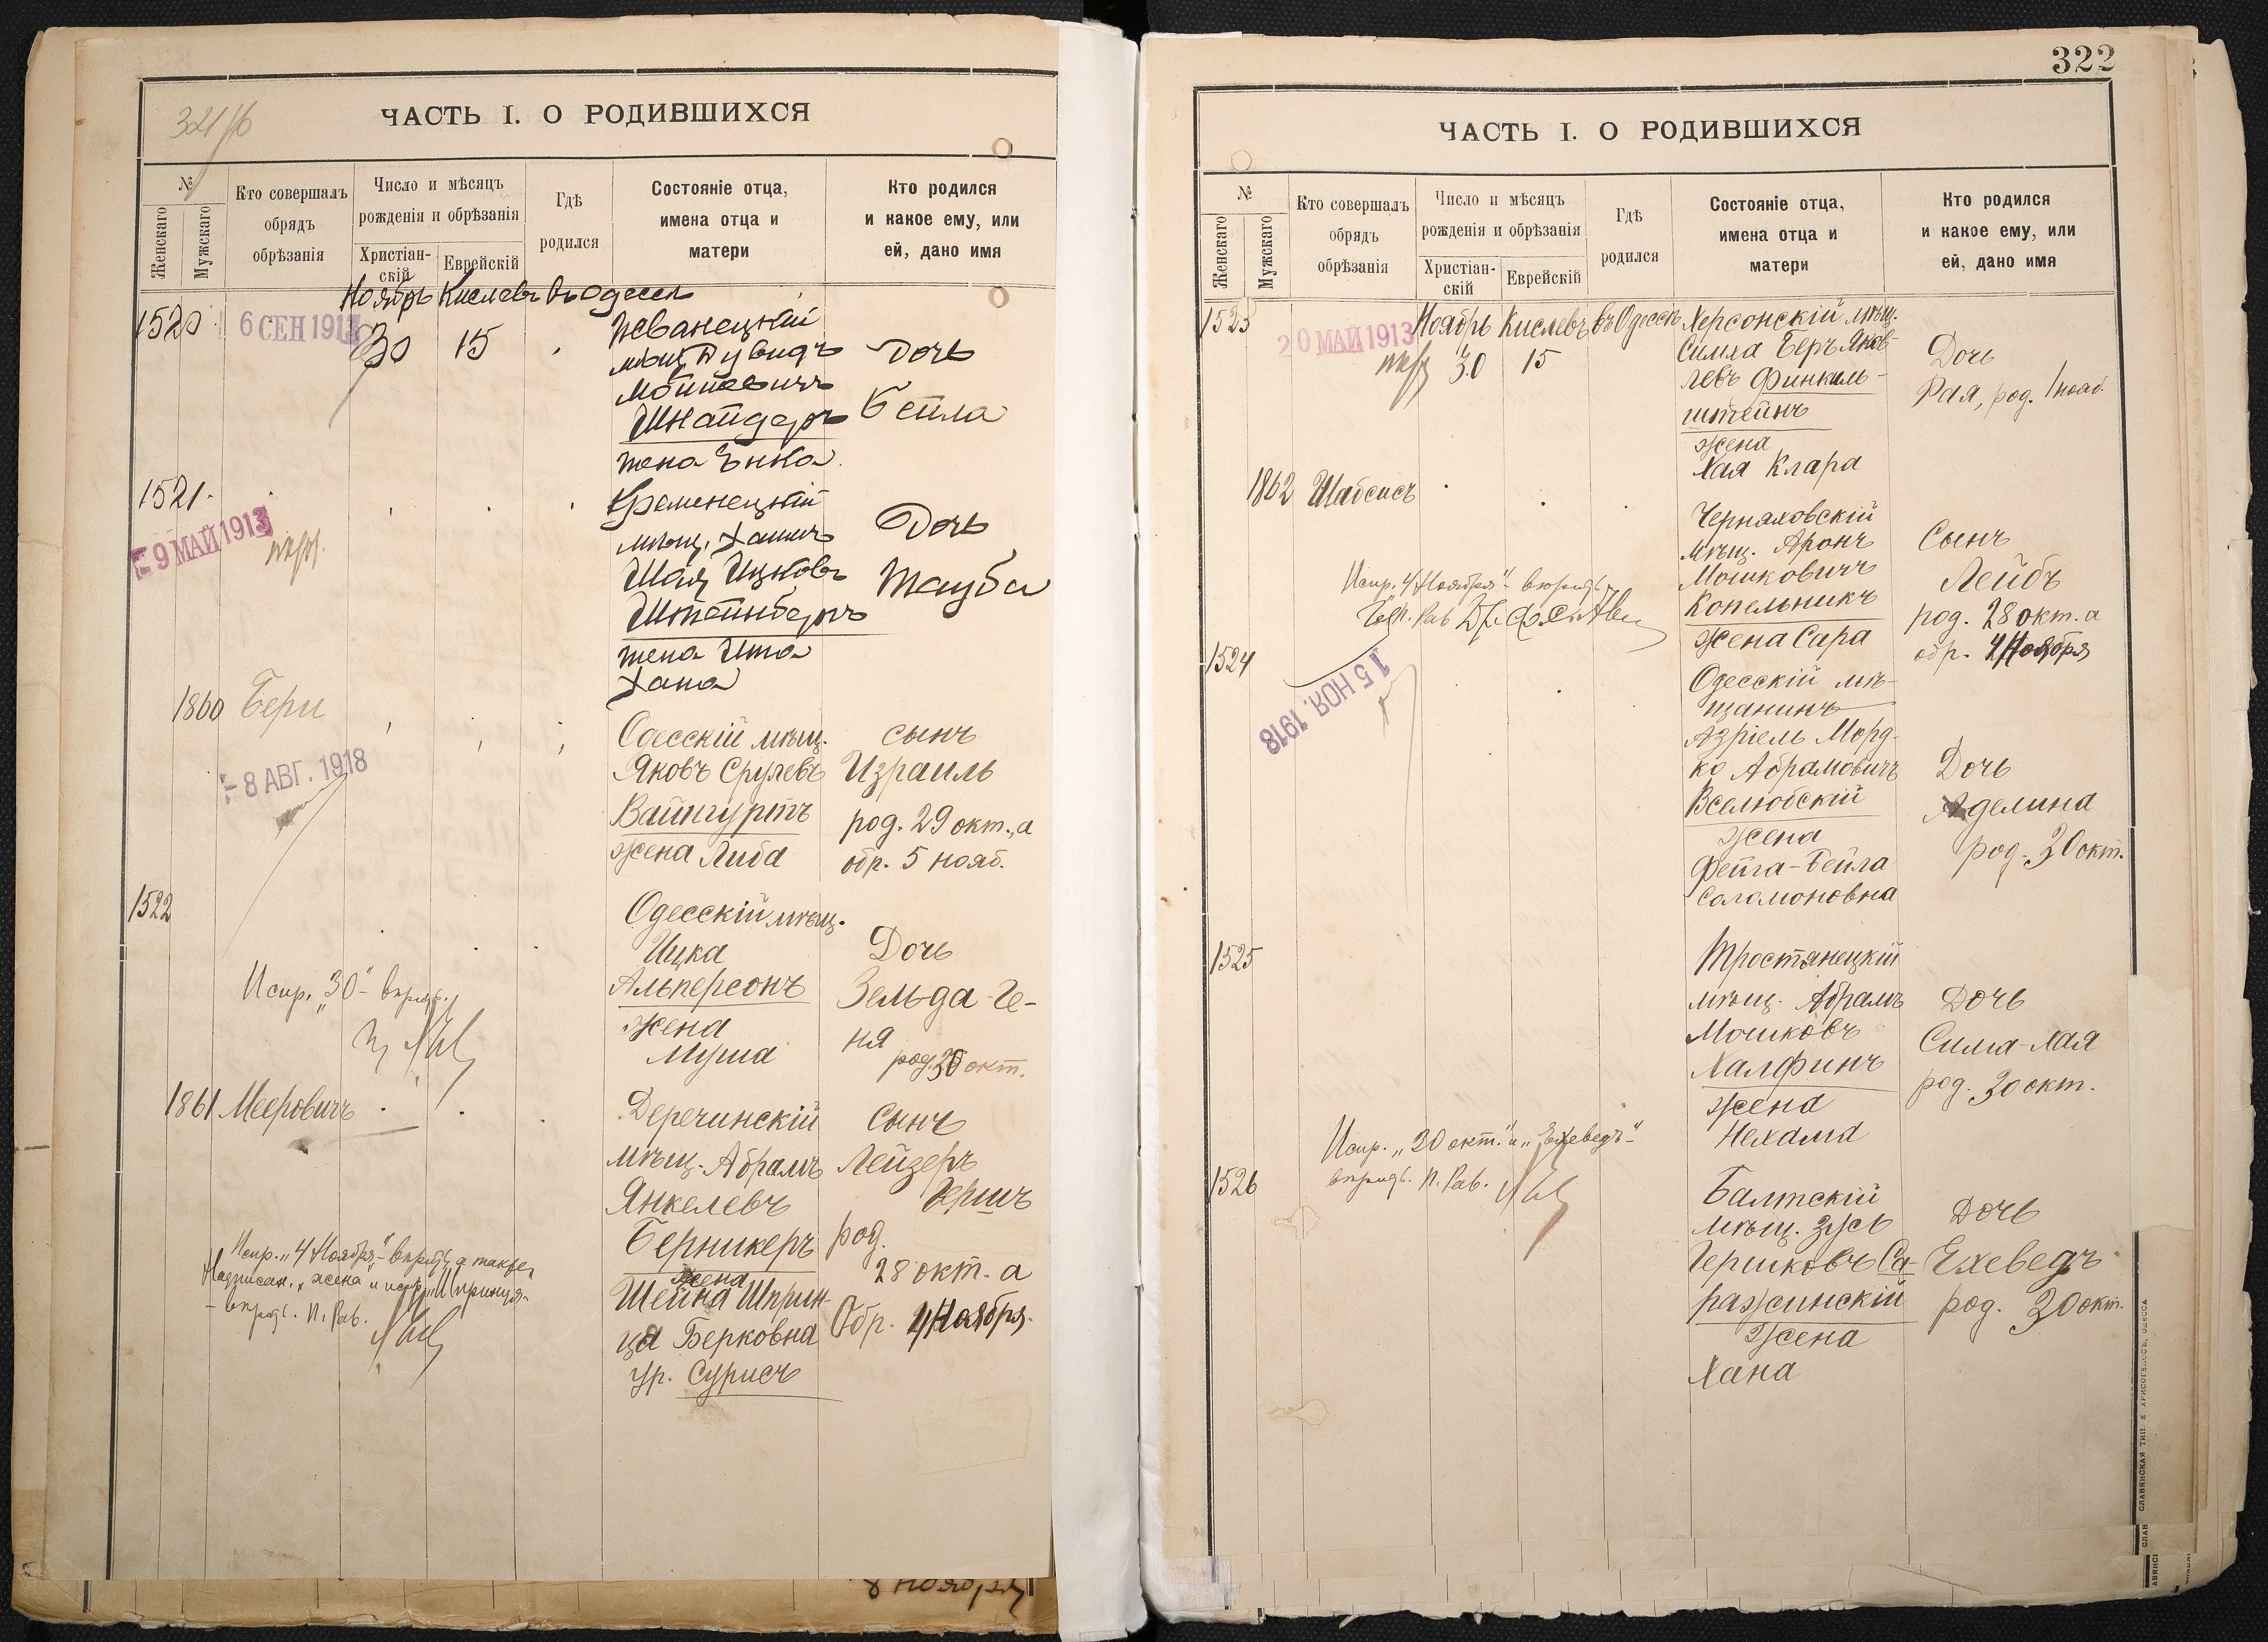 321/б
ЧАСТЬ I. О РОДИВШИХСЯ
№
Женскаго
Мужскаго
Кто совершалъ
обрядъ
обрѣзанія
Число и мѣсяцъ
рожденія и обрѣзанія
Христіан-
скій
Еврейскій
Гдѣ
родился
Состояніе отца,
имена отца и
матери
Кто родился
и какое ему, или
ей, дано имя
Ноябрь Кислевъ въ Одессѣ
1520
6 СЕН 191
30
15
Жванецкій
мѣщ. Дувидъ
Шнайдеръ
жена Энка
Дочь
Бейла
1521
9 МАЙ 1913
Кременецкій
мѣщ. Хаимъ
Шая Ицковъ
Штейнбергъ
жена Ита
Хана
Дочь
Тауба
1860 Бери
8 АВГ. 1918
Одесскій мѣщ.
Яковъ Срулевъ
Вайнгуртъ
жена Либа
сынъ
Израиль
род. 29 окт., а
обр. 5 нояб.
1522
Испр. „30“
Одесскій мѣщ.
Ицка
Альперсонъ
жена
Муша
Дочь
Зельда-Ге-
ня
род. 30 окт.
1861 Мееровичъ
Деречинскій
мѣщ. Абрамъ
Янкелевъ
Берникеръ
жена
Шейна Шприн-
ца Берковна
ур. Сурисъ
Сынъ
Лейзеръ
Гершъ
род.
28 окт. а
Обр. 4 Ноября
Испр. „4 Ноября“ а также
Надписан. „жена“ и испр. „Шпринца“
П. Рав.
8 ноября
322
ЧАСТЬ I. О РОДИВШИХСЯ
№
Женскаго
Мужскаго
Кто совершалъ
обрядъ
обрѣзанія
Число и мѣсяцъ
рожденія и обрѣзанія
Христіан-
скій
Еврейскій
Гдѣ
родился
Состояніе отца,
имена отца и
матери
Кто родился
и какое ему, или
ей, дано имя
1523
20 МАЙ 1913
Ноябрь Кислевъ въ Одессѣ
30
15
Херсонскій мѣщ.
Симха Беръ Яков-
левъ Финкель-
штейнъ
жена
Хая Клара
Дочь
Рая, род. 1 нояб.
1862 Шабсисъ
Черняховскій
мѣщ. Аронъ
Мошковичъ
Копельникъ
жена Сара
Сынъ
Лейбъ
род. 28 окт. а
обр. 4 Ноября
Испр. „4 Ноября“
1524
15 НОЯ. 1918
Одесскій мѣ-
щанинъ
Азріель Морд-
ко Абрамовичъ
Вселюбскій
жена
Фейга-Бейла
Соломоновна
Дочь
Аделина
род. 30 окт.
1525
Тростянецкій
мѣщ. Абрамъ
Мошковъ
Халфинъ
жена
Нехама
Дочь
Сима-Хая
род. 30 окт.
Испр. „30 окт.“ и „Ехеведъ“
П. Рав.
1526
Балтскій
мѣщ. Зусь
Гершковъ Са-
ражинскій
жена
Хана
Дочь
Ехеведъ
род. 30 окт.
СЛАВЯНСКАЯ ТИП. Е. ХРИСОГЕЛОСЪ, ОДЕССА